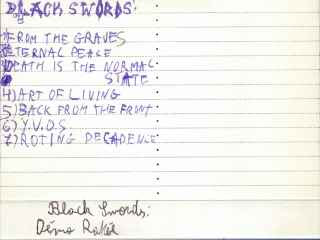 BLACK SWORDS:
FROM THE GRAVES
ETERNAL PEACE
DEATH IS THE NORMAL
STATE
4) ART OF LIVING
5) BACK FROM THE FRONT
6) Y.V.O.S.
7) ROTING DECADENCE
Black Swords:
Demo